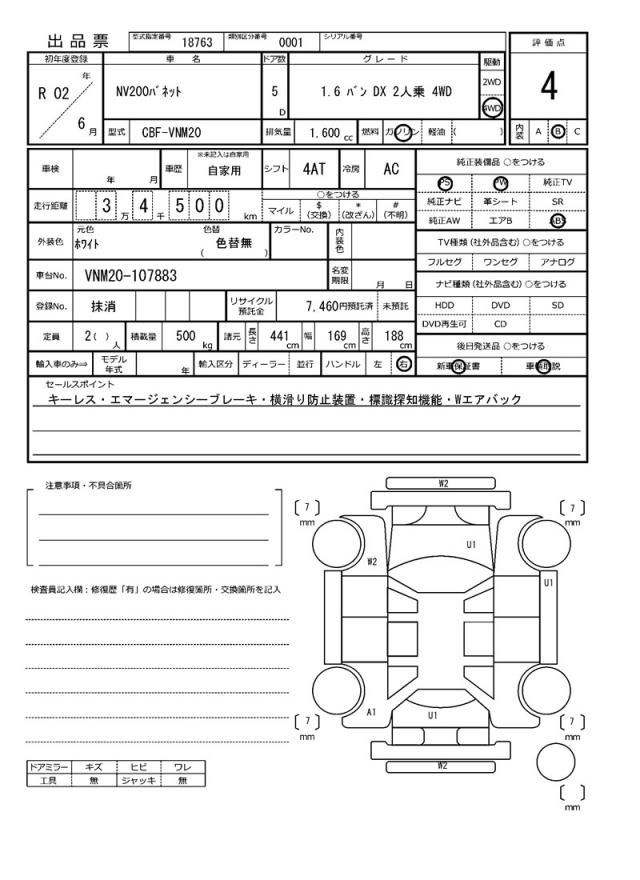 出 品 票
型式指定番号 18763 類別区分番号 0001 シリアル番号
評 価 点
4
内装 A B C
初年度登録 車 名 ドア数 グレード 駆動
R 02 年 6 月
NV200バネット 5 D 1.6 バン DX 2人乗 4WD
2WD
4WD
型式 CBF-VNM20 排気量 1,600 cc 燃料 ガソリン 軽油 ( )
車検 年 月 車歴 ※未記入は自家用 自家用 シフト 4AT 冷房 AC
走行距離 3 万 4 千 5 0 0 km
○をつける
マイル $ (交換) * (改ざん) # (不明)
外装色 元色 ホワイト 色替 色替無 ( ) カラーNo. 内装色
車台No. VNM20-107883 名変期限 月 日
登録No. 抹消 リサイクル預託金 7,460円預託済 未預託
定員 2( ) 人 積載量 500 kg 諸元 長さ 441 cm 幅 169 cm 高さ 188 cm
輸入車のみ⇒ モデル年式 年 輸入区分 ディーラー 並行 ハンドル 左 右
純正装備品 ○をつける
PS PW 純正TV
純正ナビ 革シート SR
純正AW エアB ABS
TV種類 (社外品含む) ○をつける
フルセグ ワンセグ アナログ
ナビ種類 (社外品含む) ○をつける
HDD DVD SD
DVD再生可 CD
後日発送品 ○をつける
新車保証書 車輌取説
セールスポイント
キーレス・エマージェンシーブレーキ・横滑り防止装置・標識探知機能・Wエアバック
注意事項・不具合箇所
検査員記入欄:修復歴「有」の場合は修復箇所・交換箇所を記入
ドアミラー キズ ヒビ ワレ
工具 無 ジャッキ 無
W2
[ 7 ] mm
[ 7 ] mm
U1
W2
U1
A1
U1
[ 7 ] mm
[ 7 ] mm
W2
[ ] mm